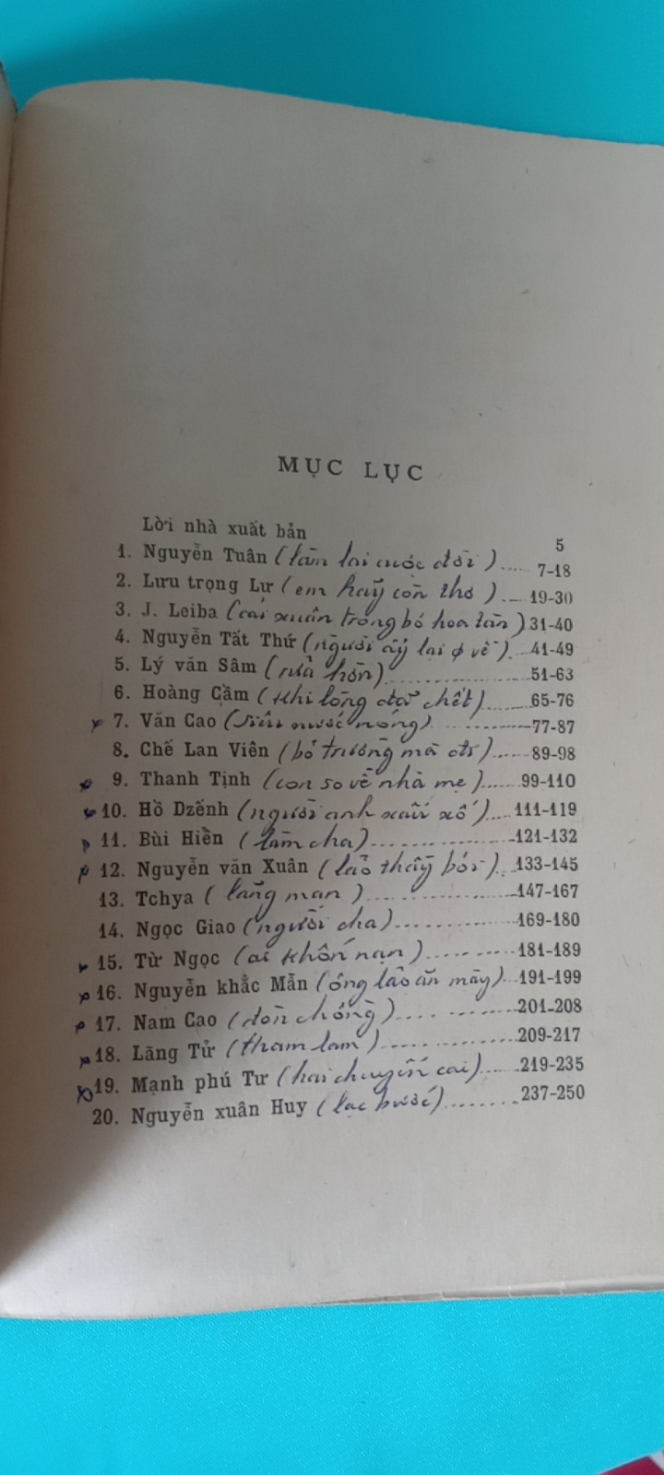 MỤC LỤC
Lời nhà xuất bản 5
1. Nguyễn Tuân (làm lại cuộc đời) 7-18
2. Lưu trọng Lư (em hãy còn thơ) 19-30
3. J. Leiba (cái xuân trong bó hoa tàn) 31-40
4. Nguyễn Tất Thứ (người ấy lại về) 41-49
5. Lý văn Sâm (nửa hồn) 51-63
6. Hoàng Cầm (khi lòng đã chết) 65-76
7. Văn Cao (siêu nước nóng) 77-87
8. Chế Lan Viên (bỏ trường mà đi) 89-98
9. Thanh Tịnh (con so về nhà mẹ) 99-110
10. Hồ Dzếnh (người anh xấu xố) 111-119
11. Bùi Hiển (làm cha) 121-132
12. Nguyễn văn Xuân (lão thầy bói) 133-145
13. Tchya (lãng mạn) 147-167
14. Ngọc Giao (người cha) 169-180
15. Từ Ngọc (ai khốn nạn) 181-189
16. Nguyễn khắc Mẫn (ông lão ăn mày) 191-199
17. Nam Cao (đòn chồng) 201-208
18. Lãng Tử (tham lam) 209-217
19. Mạnh phú Tư (hai chuyến cai) 219-235
20. Nguyễn xuân Huy (lạc bước) 237-250